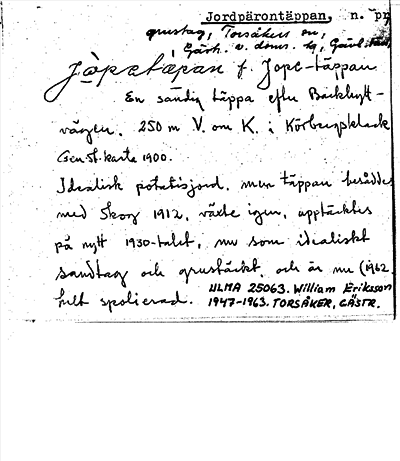 Jordpärontäppan, n. pr
grustag, Torsåkers sn,
Gästr. ö. doms. hg, Gävl. län,
Jòpetæpan f. Jope-täppan
En sandig täppa efter Backhytt-
vägen. 250 m V. om K. i Körbergsklack
Gen.St. karta 1900.
Idealisk potatisjord, men täppan besådde
med skog 1912, växte igen, upptäcktes
på nytt 1930-talet, nu som idealiskt
sandtag och grustäckt, och är nu (1962
helt spolierad. ULMA 25063. William Eriksson
1947-1963. TORSÅKER, GÄSTR.